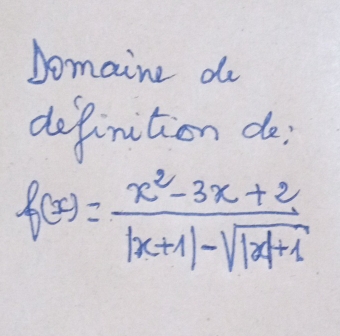 Domaine de
définition de:
f(x) = \frac{x^2-3x+2}{|x+1|-\sqrt{|x|+1}}